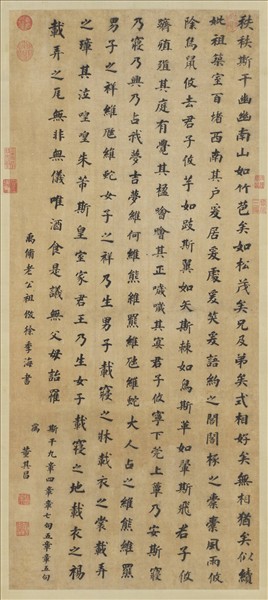 秩秩斯干幽幽南山如竹苞矣如松茂矣兄及弟矣式相好矣無相猶矣似續
妣祖築室百堵西南其戶爰居爰處爰笑爰語約之閣閣椓之橐橐風雨攸
除鳥鼠攸去君子攸芋如跂斯翼如矢斯棘如鳥斯革如翬斯飛君子攸
躋殖殖其庭有覺其楹噲噲其正噦噦其冥君子攸寧下莞上簟乃安斯寢
乃寢乃興乃占我夢吉夢維何維熊維羆維虺維蛇大人占之維熊維羆
男子之祥維虺維蛇女子之祥乃生男子載寢之牀載衣之裳載弄
之璋其泣喤喤朱芾斯皇室家君王乃生女子載寢之地載衣之裼
載弄之瓦無非無儀唯酒食是議無父母詒罹
斯干九章四章章七句五章章五句
禹脩老公祖倣徐季海書
寫 董其昌